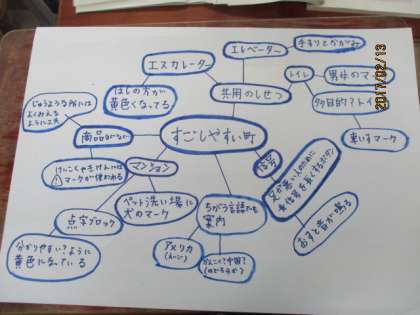 手すりとかがみ
エレベーター
エスカレーター
トイレ
男女のマーク
はしの方が
黄色くなってる
共用のしせつ
多目的?トイレ
車いすマーク
じゅうような所には
すごしやすい町
信号
足が悪い人のために
青信号を長くするボタン
おすと音が鳴る
マンション
マークが使われる
ペット洗い場に
犬のマーク
点字ブロック
分かりやすい?ように
黄色になっている
ちがう言語でも
案内
アメリカ
かんこく?中国?
2017/02/13